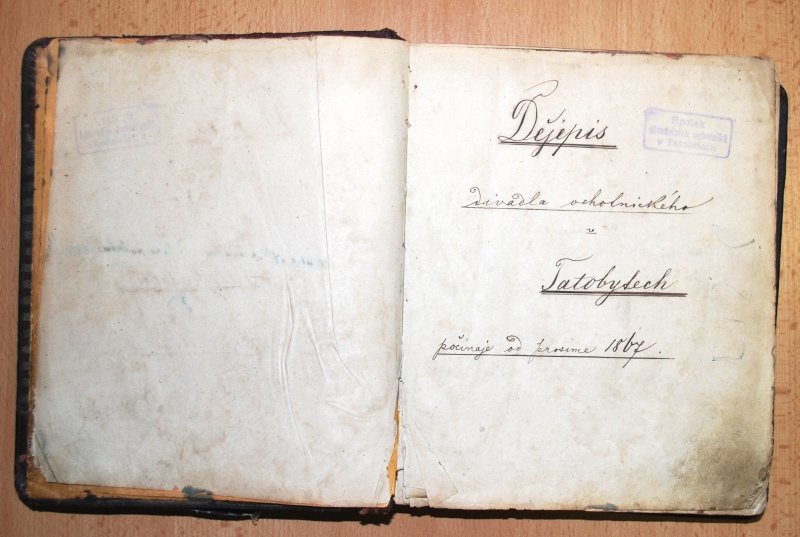 Dějepis
divadla ochotnického
v
Tatobytech
počínaje od prosince 1867.
Spolek
divadelních ochotníků
v Tatobitech